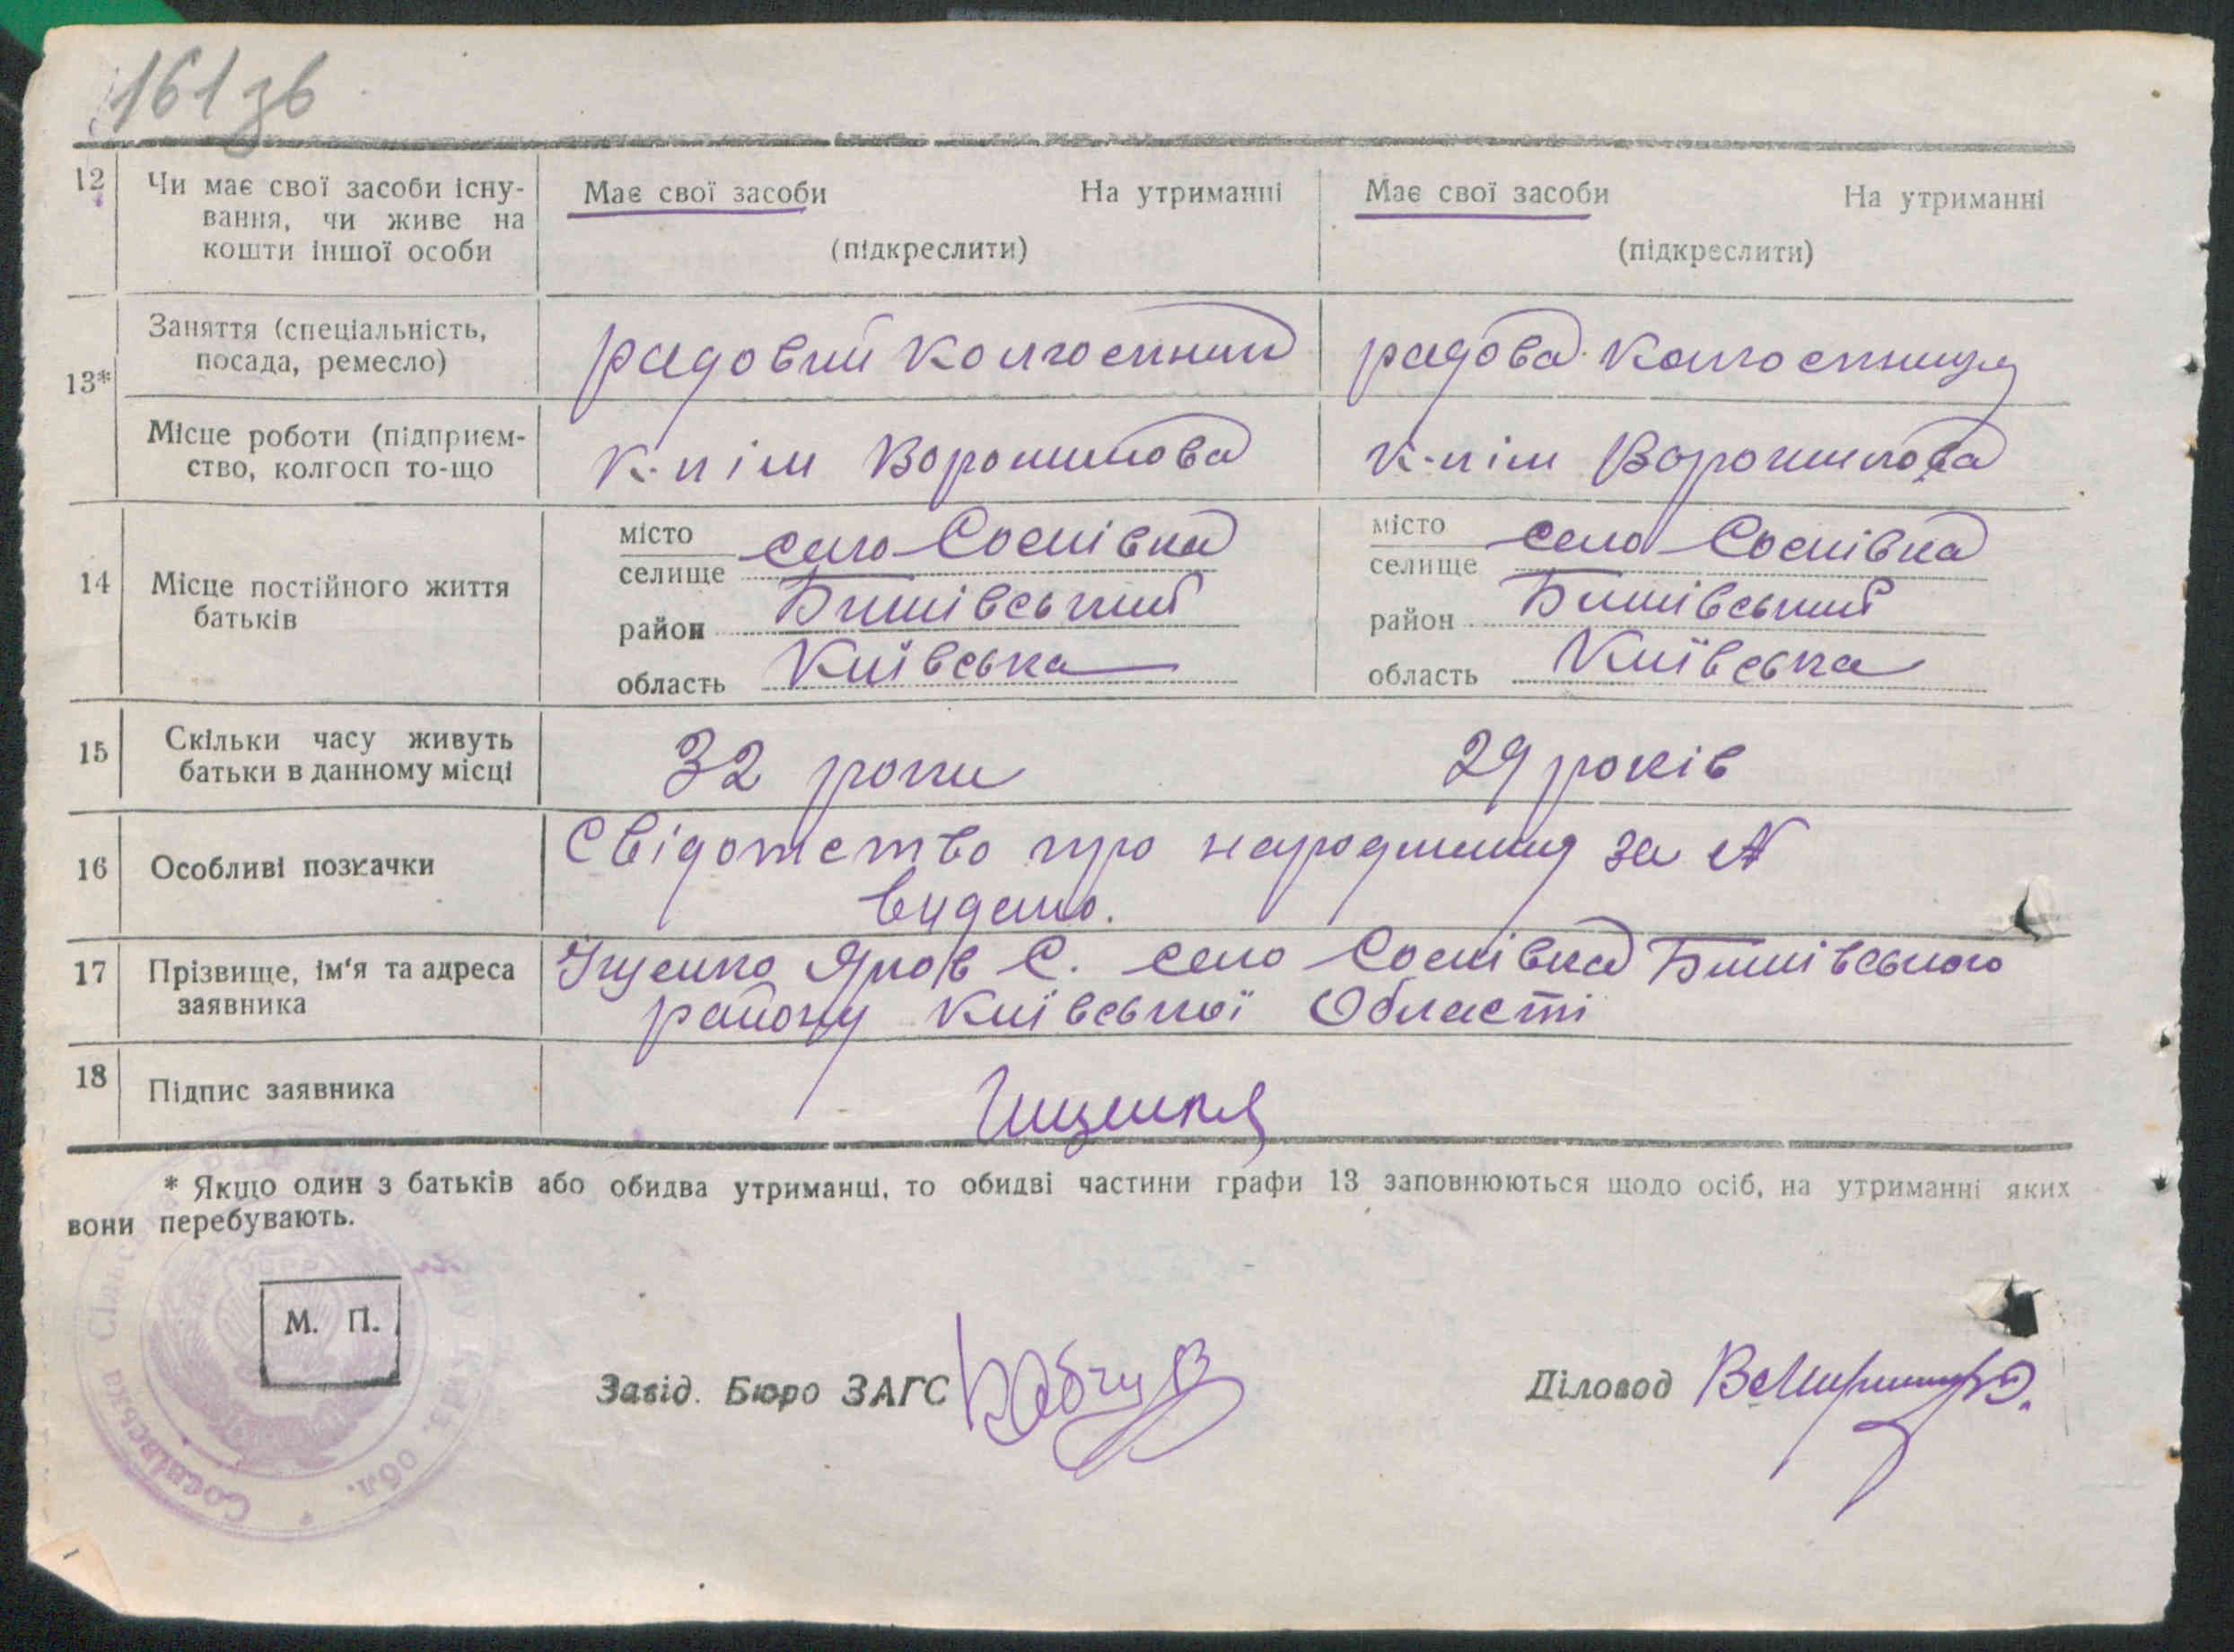 161зв
12 Чи має свої засоби існу- Має свої засоби На утриманні Має свої засоби На утриманні
вання, чи живе на
кошти іншої особи (підкреслити) (підкреслити)
Заняття (спеціальність,
посада, ремесло) радовий колгоспник радова колгоспниця
13*
Місце роботи (підприєм-
ство, колгосп то-що к-п ім Ворошилова к-п ім Ворошилова
місто село Соснівка місто село Соснівка
селище селище
14 Місце постійного життя
батьків
район Бишівський район Бишівський
область Київська область Київська
15 Скільки часу живуть
батьки в данному місці 32 роки 29 років
16 Особливі позначки Свідотство про народження за №
видано.
17 Прізвище, ім'я та адреса Іщенко Яков С. село Соснівка Бишівського
заявника району Київської Області
18 Підпис заявника Іщенко
* Якщо один з батьків або обидва утриманці, то обидві частини графи 13 заповнюються щодо осіб, на утриманні яких
вони перебувають.
М. П.
Завід. Бюро ЗАГС
Діловод
Соснівська Сільс
обл.